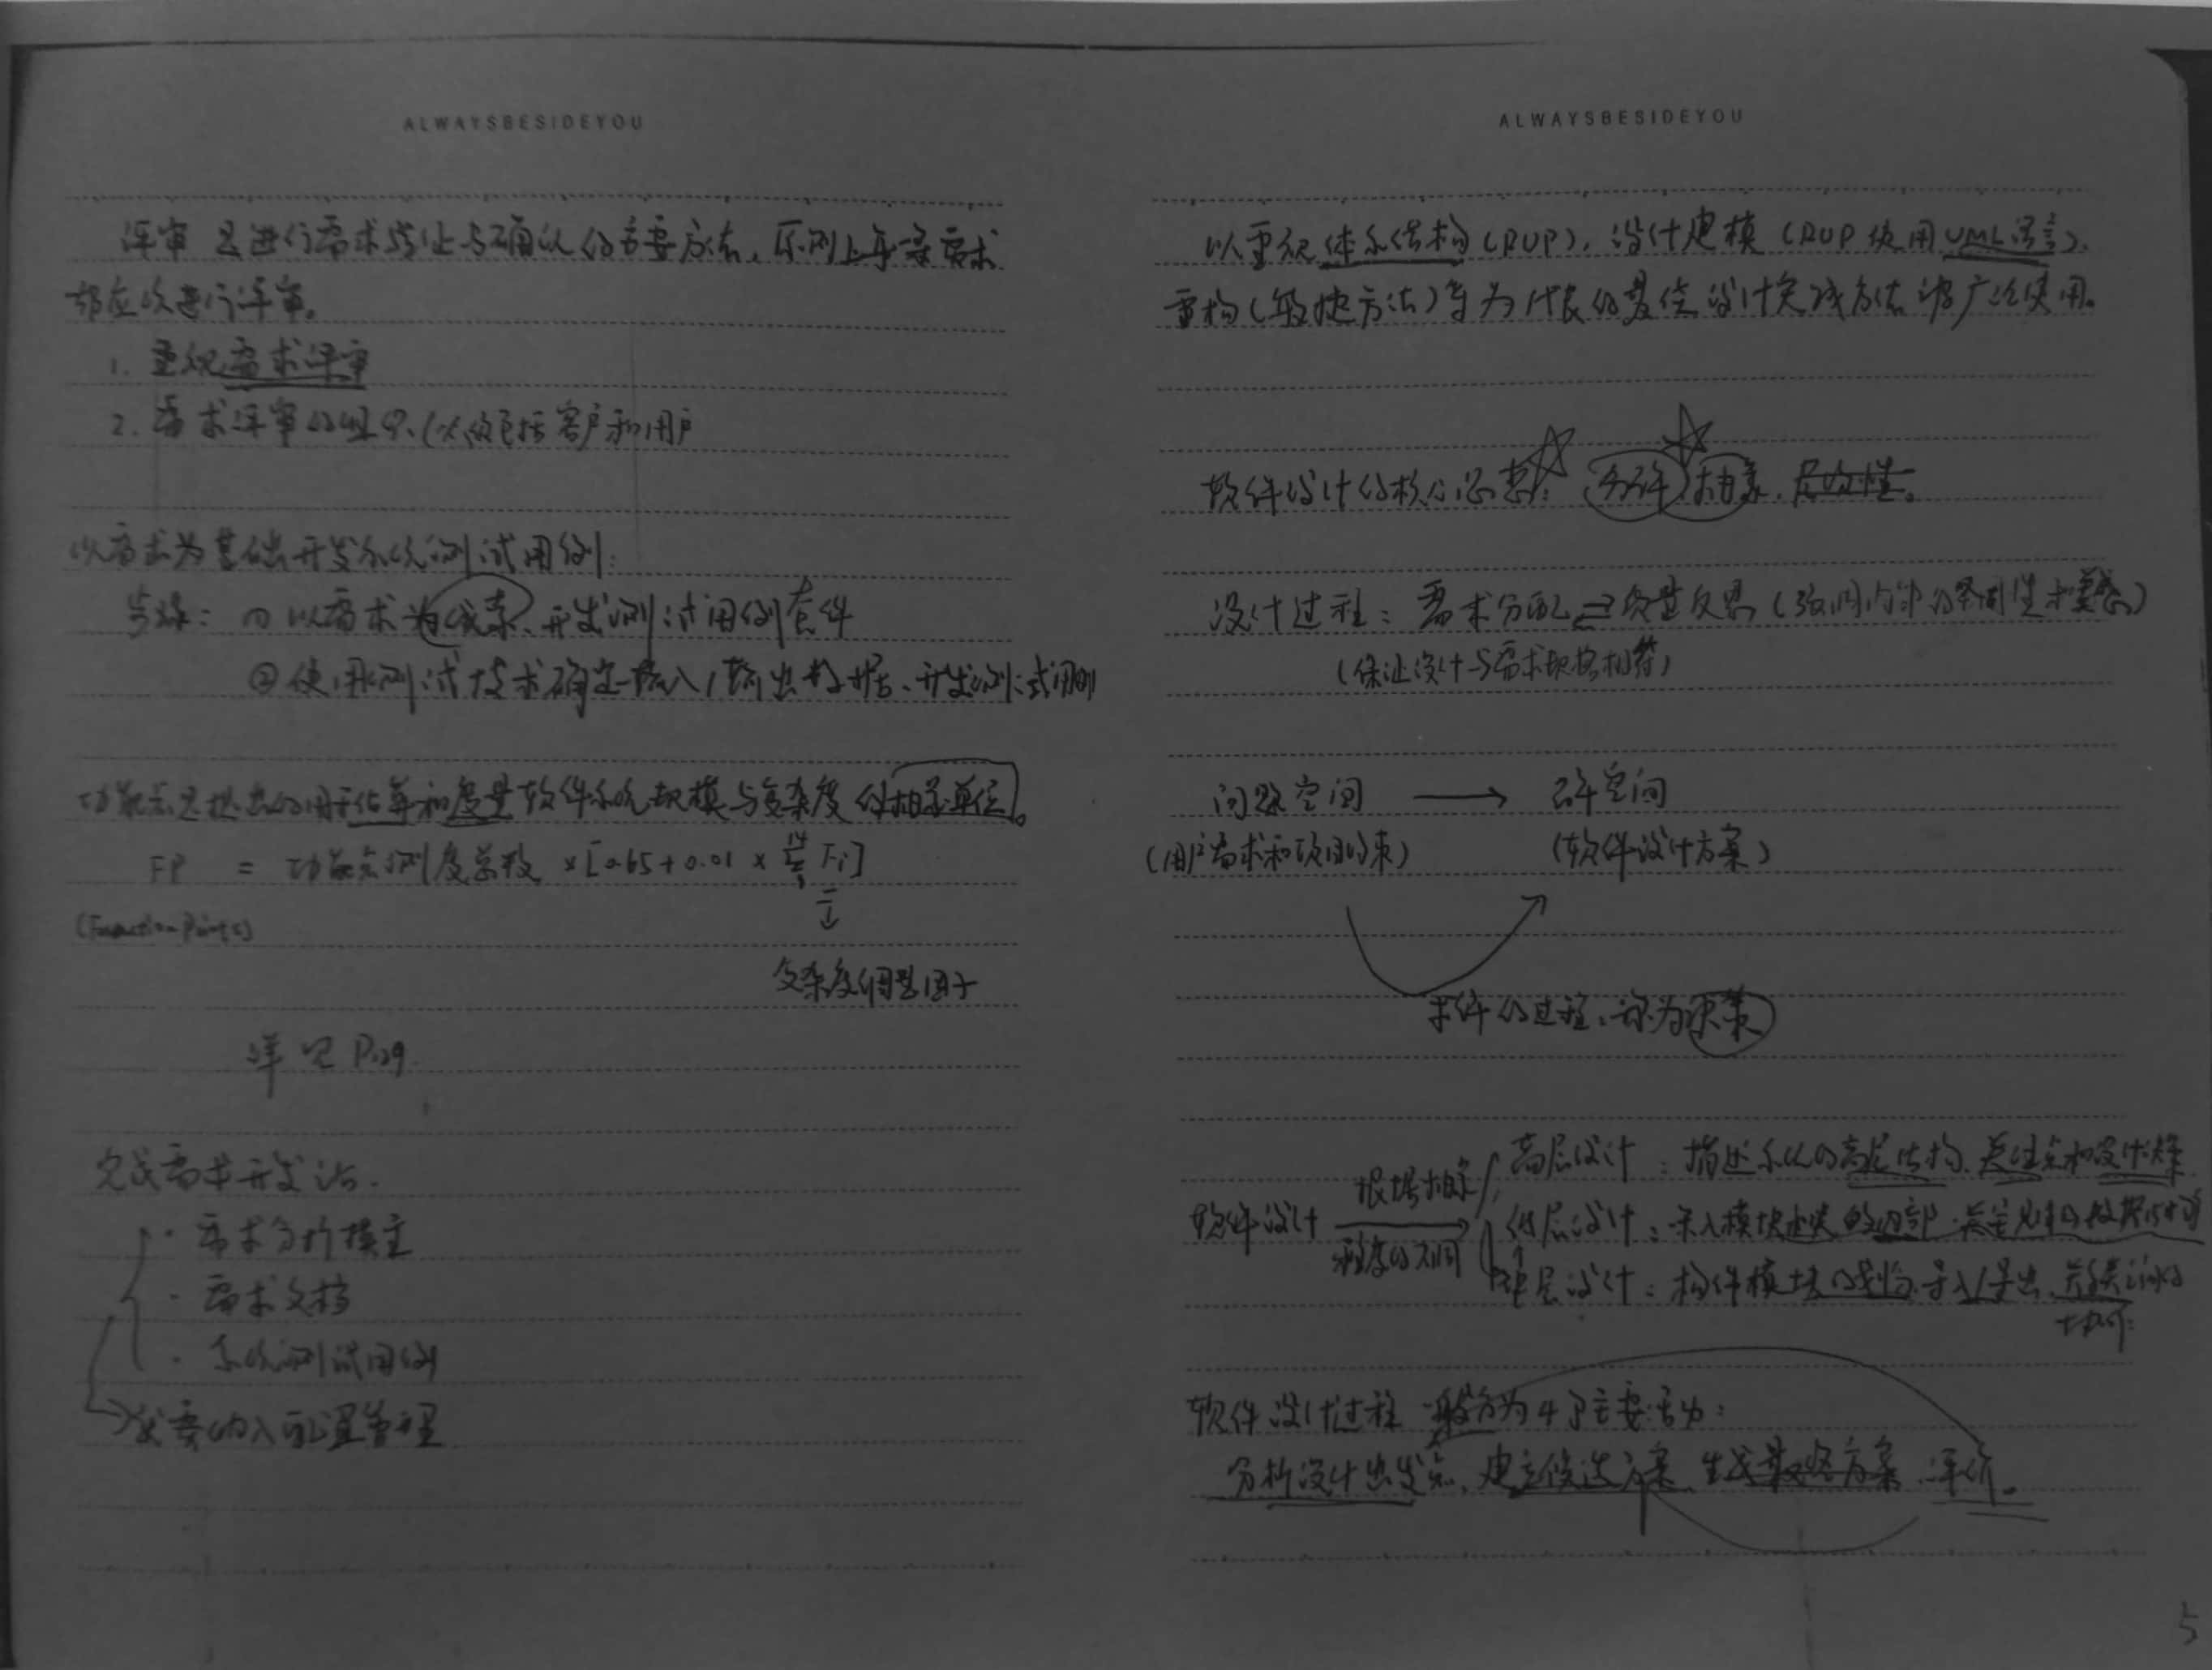 ALWAYSBESIDEYOU
评审是进行需求验证与确认的主要方法，原则上每一条需求
都应该进行评审。
1. 重视需求评审
2. 需求评审的组织，必须包括客户和用户
以需求为基础开发系统测试用例：
步骤：① 以需求为线索，开发测试用例套件
② 使用测试技术确定输入/输出数据，开发测试用例
功能点是提出的用于估算和度量软件系统规模与复杂度的抽象单位。
FP = 功能点测度总数 × [0.65 + 0.01 × Σ Fi]
14
1
(Function Points)
复杂度调整因子
详见 P129.
完成需求开发后.
· 需求分析模型
· 需求文档
· 系统测试用例
→ 需要纳入配置管理
ALWAYSBESIDEYOU
以重视体系结构(RUP)，设计建模(RUP使用UML语言)，
重构(敏捷方法)等为代表的 设计实践方法被广泛使用。
软件设计的核心思想：分解、抽象、层次性。
设计过程：需求分配 ⇌ 质量反思
(保证设计与需求规格相符)
问题空间 → 解空间
(用户需求和项目约束) (软件设计方案)
求解的过程，称为决策
高层设计：描述系统的高层结构、关注点和设计决策
软件设计 根据抽象
程度的不同
低层设计：深入模块和类的内部，关注具体的数据结构
中层设计：构件模块的划分、导入/导出、
软件设计过程一般分为4个主要活动：
分析设计出发点、建立候选方案、生成最终方案、评价。
5